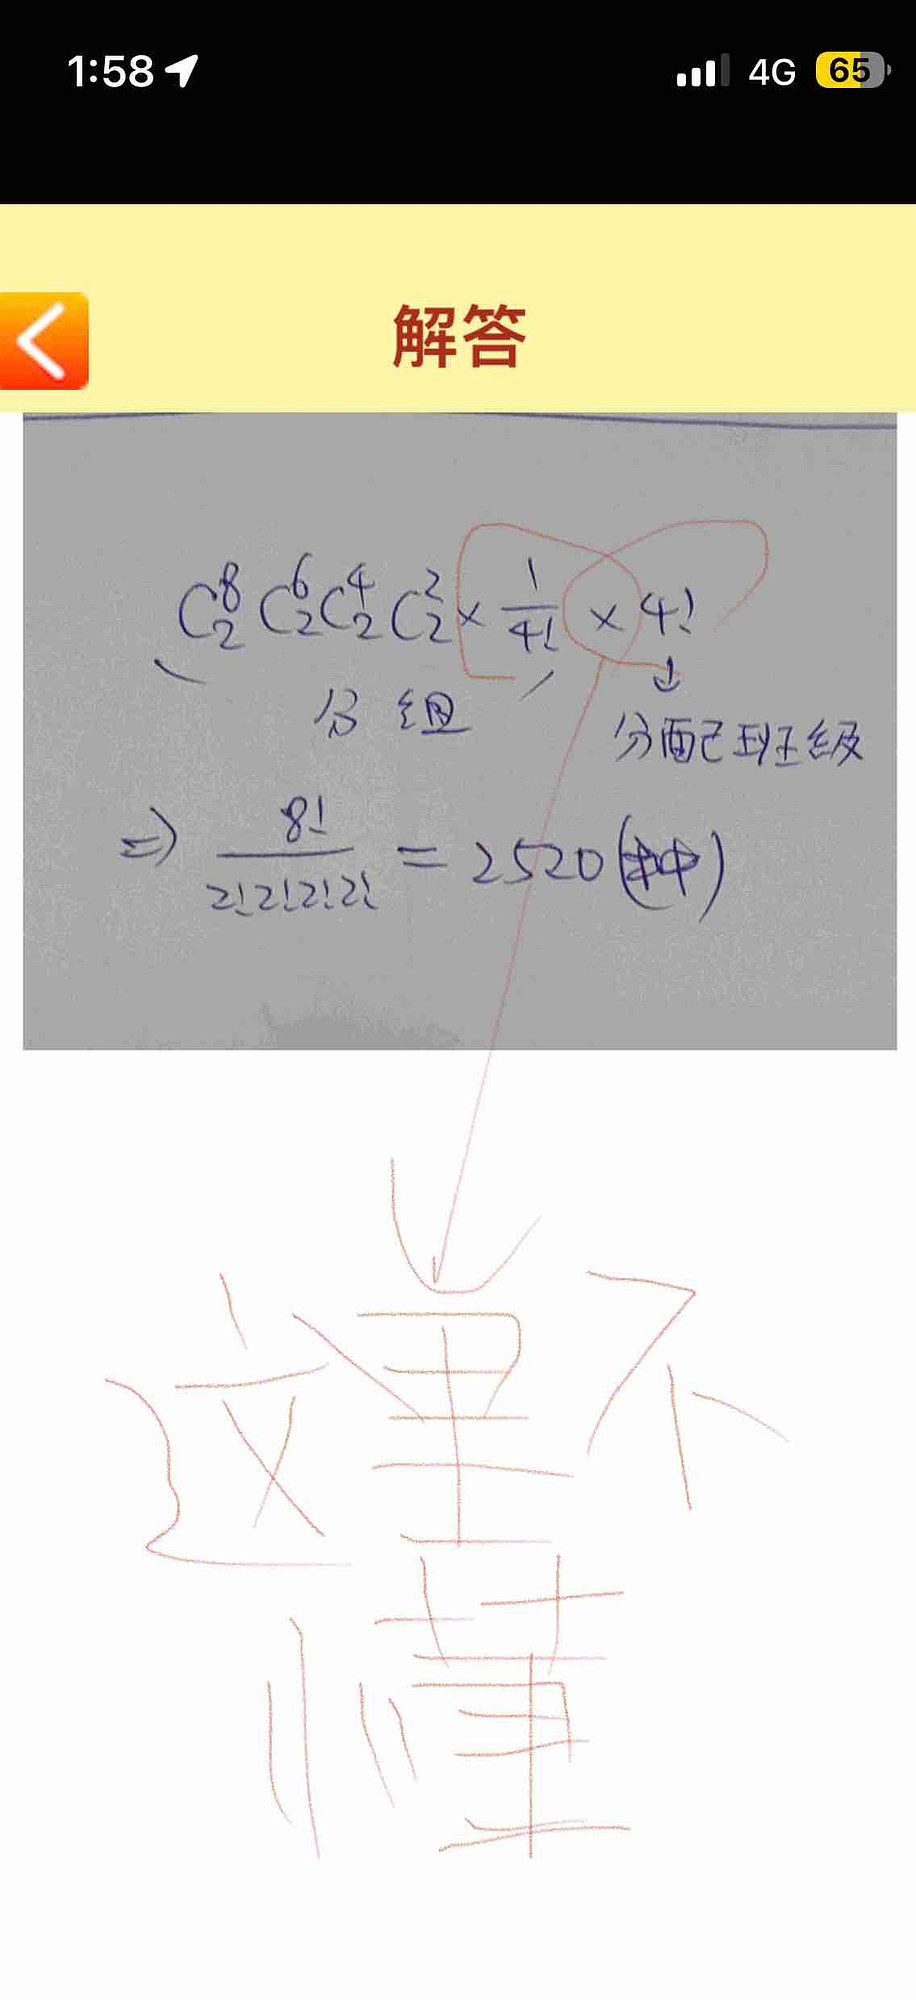 1:58 4G 65
解答
C⁸₂ C⁶₂ C⁴₂ C²₂ × 1/4! × 4!
分組 分配班级
⇒ 8!/2!2!2!2! = 2520(种)
这里不
懂